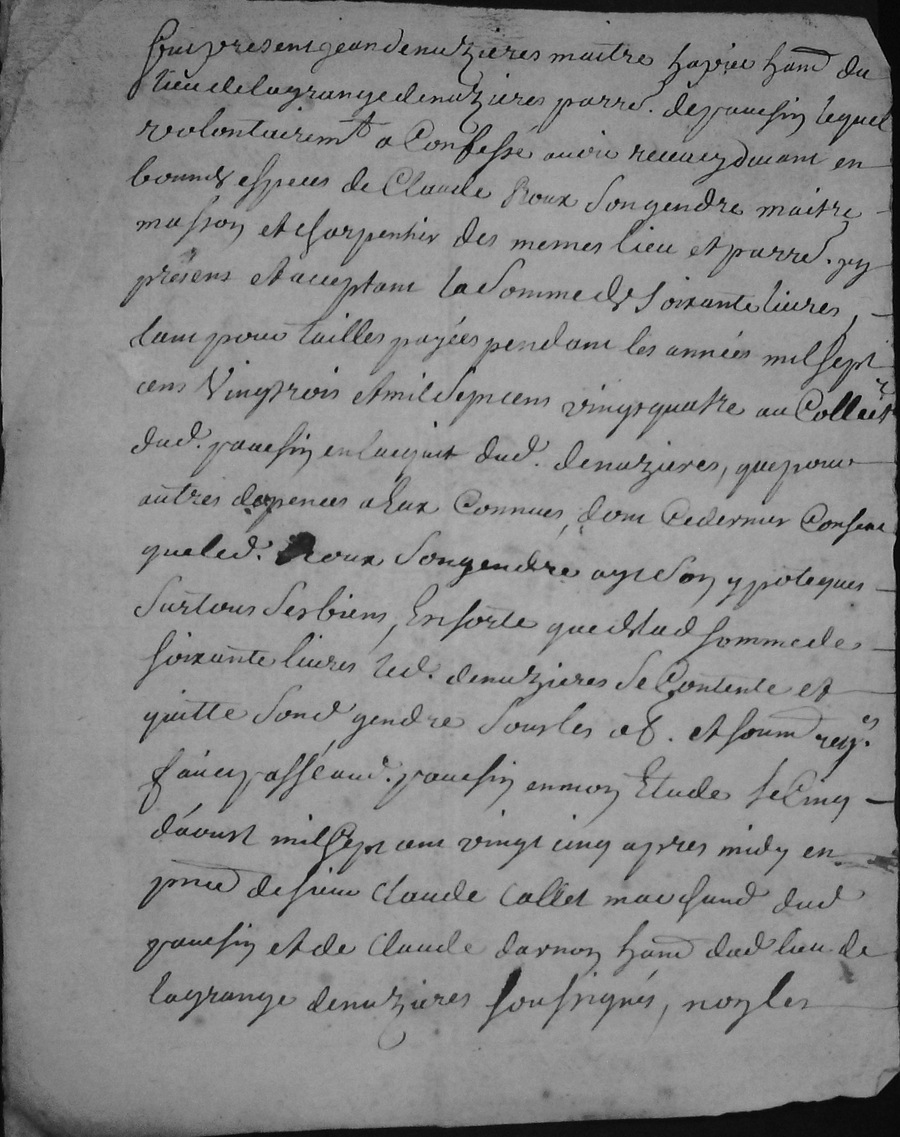 fut present jean denuzieres maitre habit hand du
lieu de lagrange denuzieres parre. de pauchin lequel
volontairemt a Confessé avoir receu cy devant en
bonnes especes de Claude Roux Son gendre maitre
masson et charpentier des memes lieu et parre. icy
présens et acceptant la Somme de Soixante livres,
tant pour tailles payées pendant les années mil Sept
cens Vingt trois et mil Sept cens vingt quatre au Collectr
dud. pauchin en l'acquit dud. denuzieres, que pour
autres depences a Eux Connues, dont Ce dernier Consent
que led. Roux Son gendre aye Son ypoteques
Sur tous Ses biens, En sorte que de lad somme de
soixante livres led. denuzieres Se Contente et
quitte Sond gendre Sous les ob. et soumd reqs.
fait et passé aud. pauchin en mon Etude le Cinq
d'aoust mil Sept cent vingt cinq apres midy en
pnce de sieur Claude Collet marchand dud
pauchin et de Claude darnon hand dud lieu de
lagrange denuzieres soussignés, non les